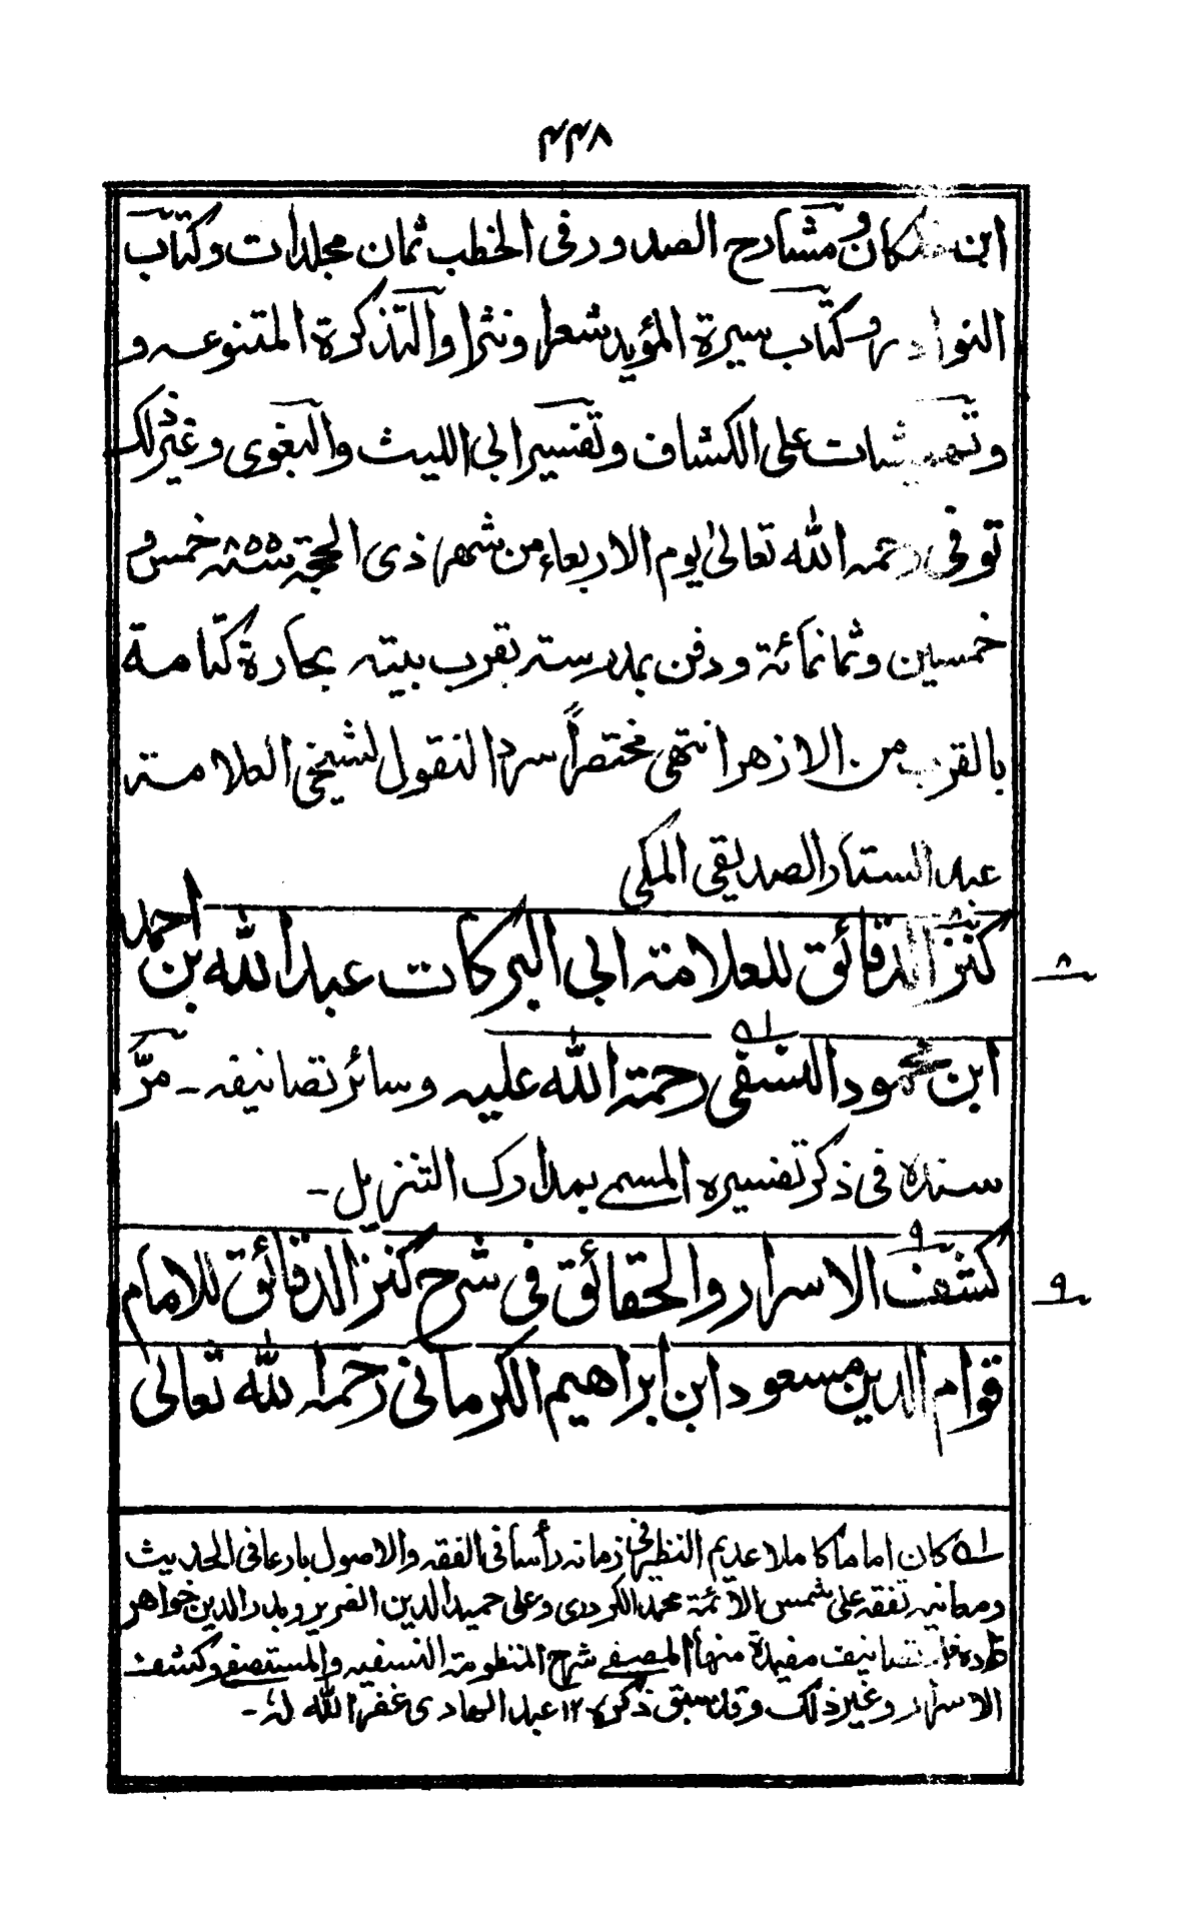 ۴۴۸
ابن خلكان ومشارح الصدور فی الخطب ثمان مجلدات وكتاب
النوادر وكتاب سيرة المؤيد شعرا ونثرا والتذكرة المتنوعہ و
وتهميشات على الكشاف وتفسير ابی الليث والبغوی وغير ذلك
توفی رحمہ اللہ تعالیٰ يوم الاربعاء من شهر ذی الحجۃ سنہ ۸۵۵ خمس و
خمسين وثمانمائة ودفن بمدرستہ بقرب بيتہ بحارة كتامة
بالقرب من الازهر انتهی مختصراً سرد النقول لشيخی العلامۃ
عبد الستار الصديقی المكی
۸
كنز الدقائق للعلامۃ ابی البركات عبد اللہ بن احمد
ابن محمود النسفی لہ رحمۃ اللہ عليہ وسائر تصانيفہ ۔ مرّ
سندہ فی ذكر تفسيرہ المسمی بمدارك التنزيل ۔
۹
كشف الاسرار والحقائق فی شرح كنز الدقائق للامام
قوام الدين مسعود ابن ابراهيم الكرمانی رحمہ اللہ تعالیٰ
لہ كان اماما كاملا عديم النظير فی زمانہ رأسا فی الفقہ والاصول بارعا فی الحديث
ومعانيہ تفقہ علی شمس الائمۃ محمد الكردری وعلی حميد الدين الضرير وبدر الدين خواهر
زادہ لہ تصانيف مفيدۃ منها المصفی شرح المنظومۃ النسفيہ والمستصفی وكشف
الاسرار وغير ذلك وقد سبق ذكرہ ۱۲ عبد الهادی غفر اللہ لہ ۔